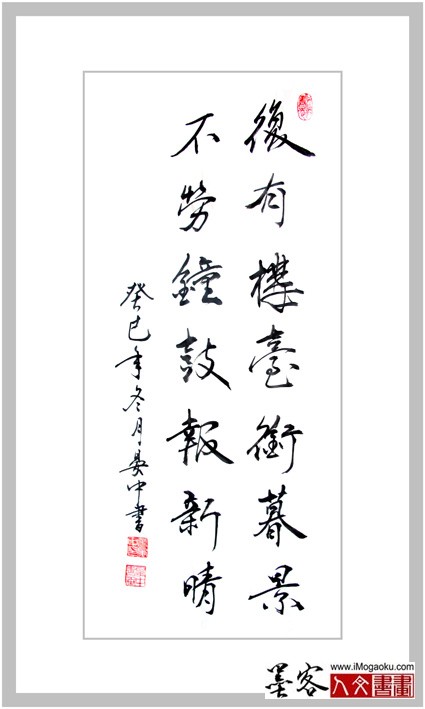 復有樓臺銜暮景
不勞鐘鼓報新晴
癸巳年冬月晏中書
墨客
www.iMogaoku.com
人文書畫